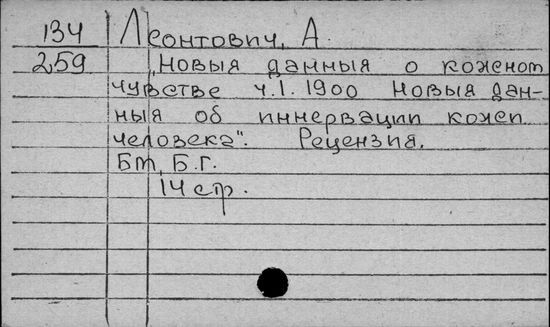 134 Леонтович, А.
259 „Новыя данныя о кожном
чувстве ч.1. 1900 Новыя дан-
ныя об иннервации кожи
человека". Рецензия.
Бт, Б.г.
14 стр.